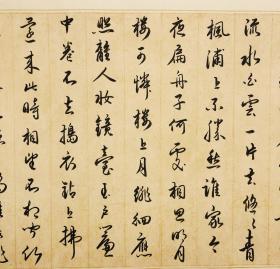 流水白雲一片去悠悠青
楓浦上不勝愁誰家今
夜扁舟子何處相思明月
樓可憐樓上月徘徊應
照離人妝鏡臺玉戶簾
中卷不去擣衣砧上拂
還來此時相望不相聞